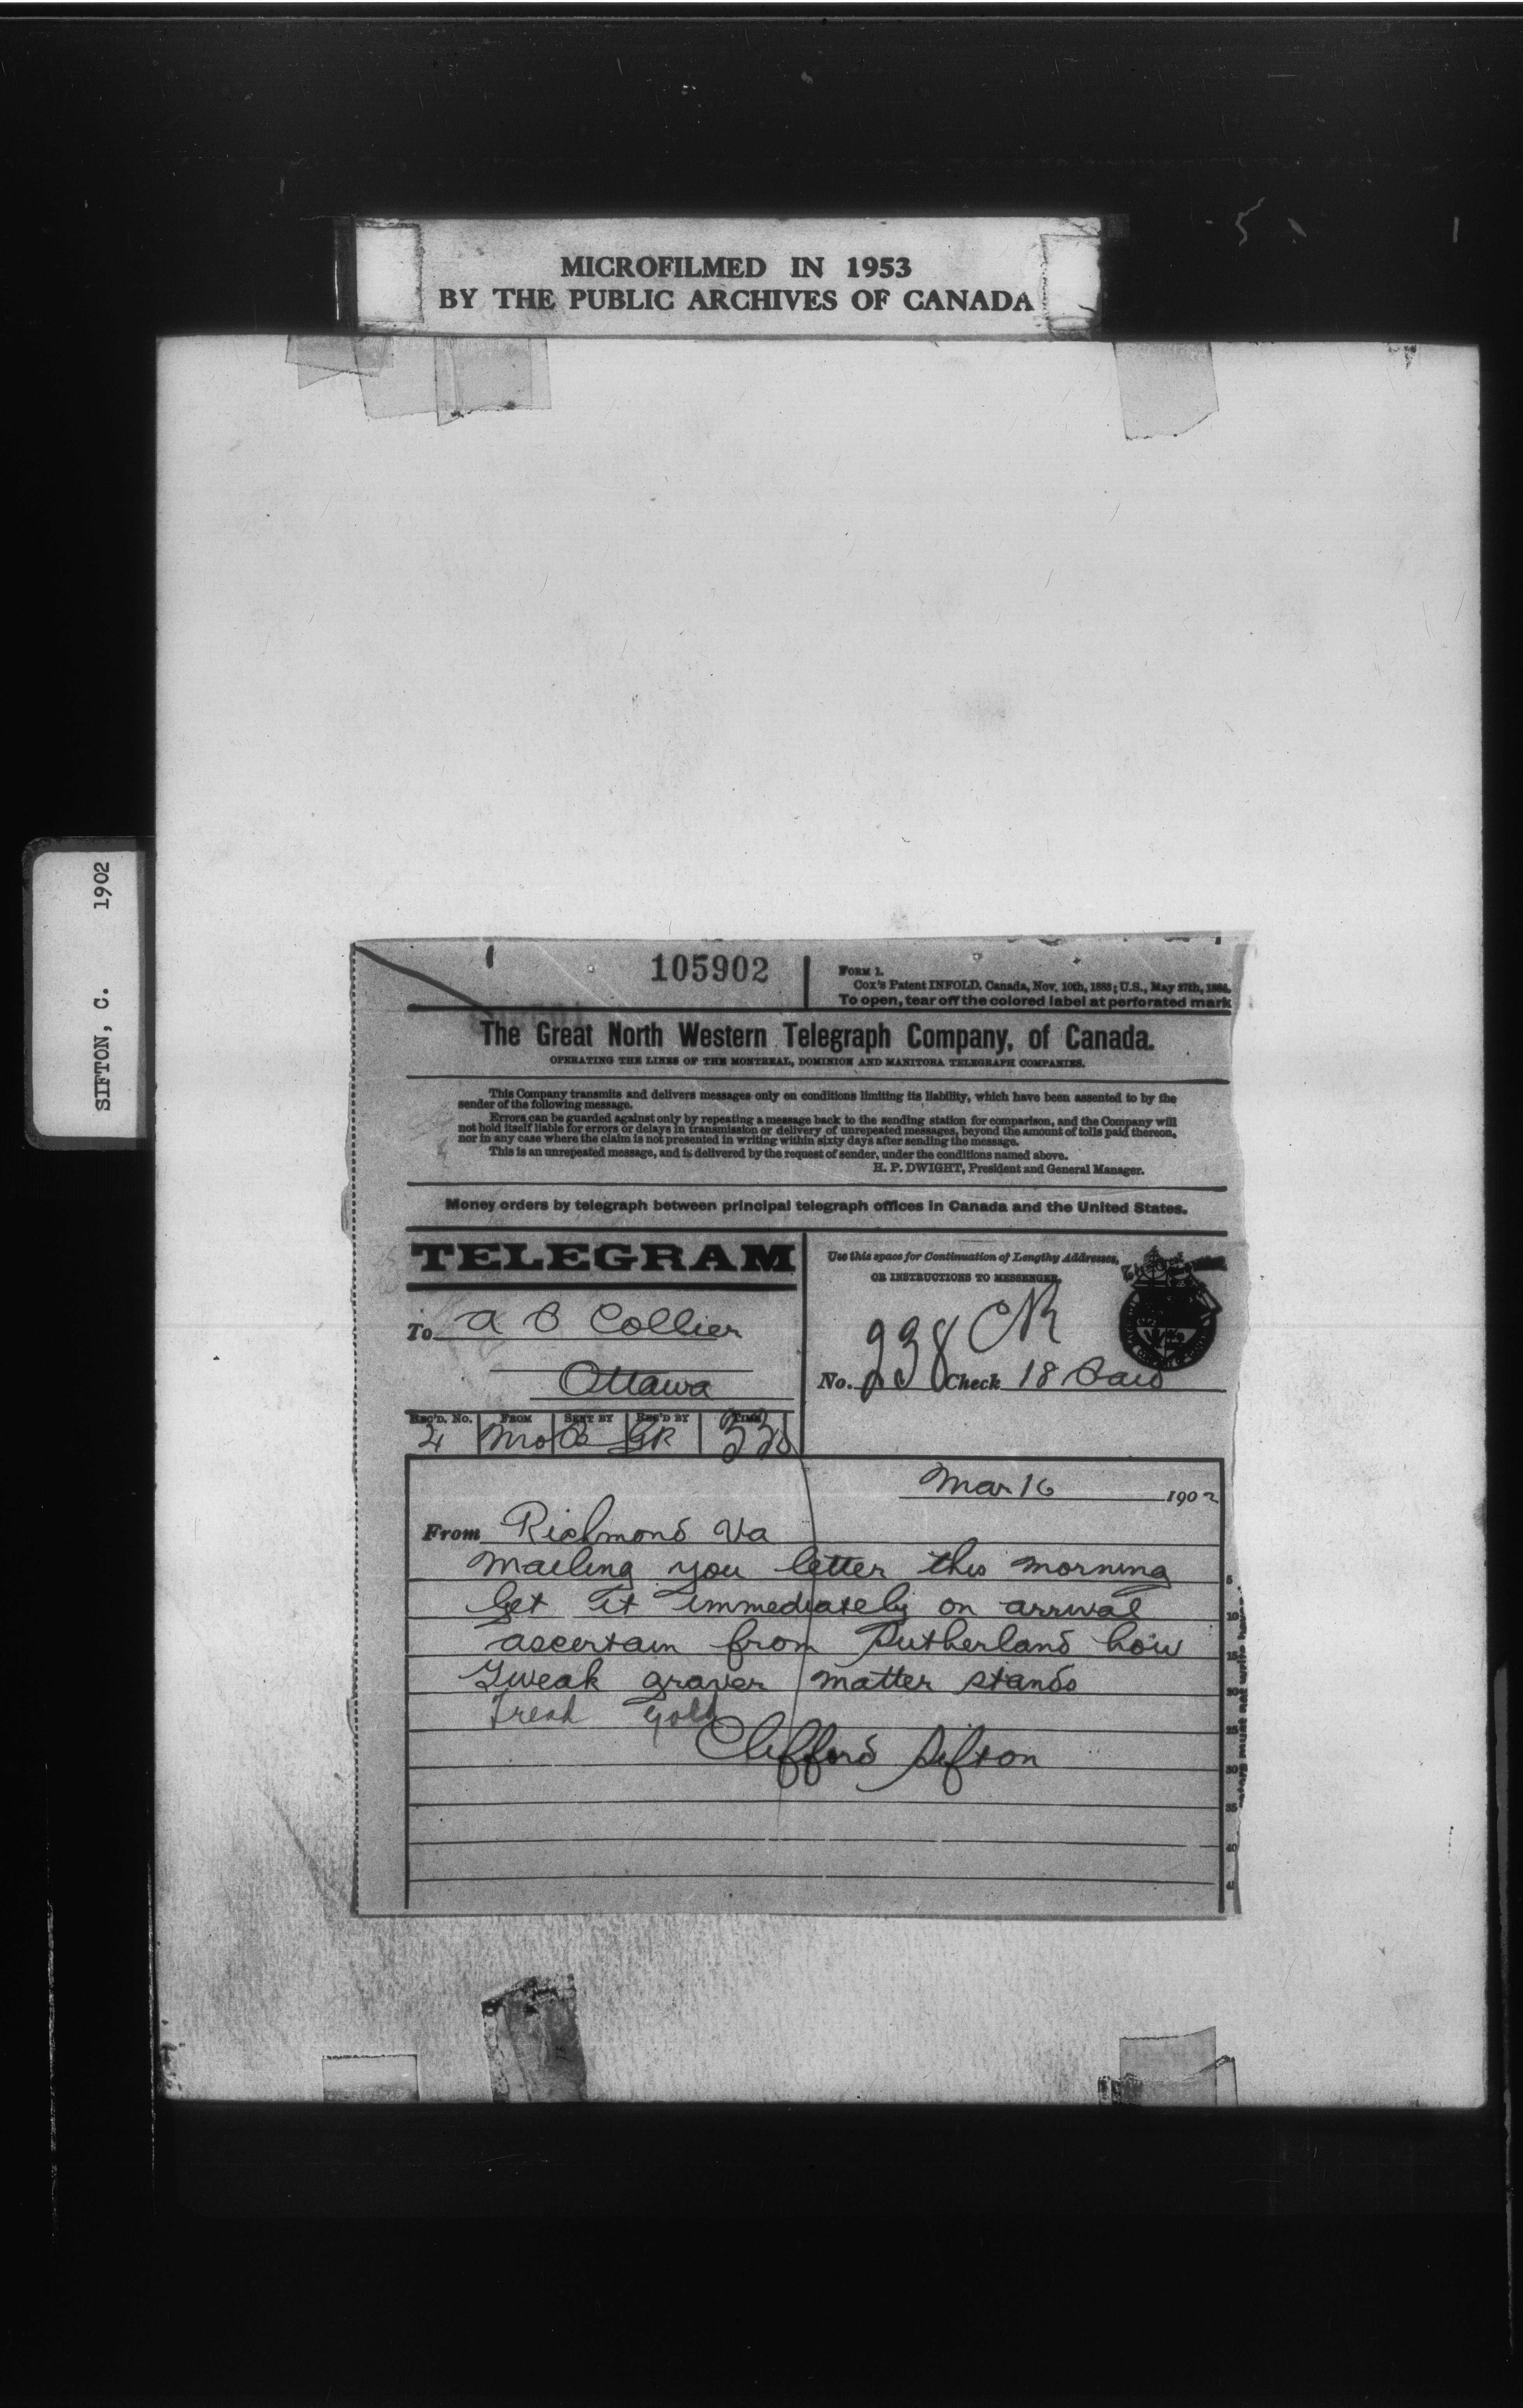 MICROFILMED IN 1953
BY THE PUBLIC ARCHIVES OF CANADA
SIFTON, C. 1902
105902
FORM 1.
Cox's Patent INFOLD. Canada, Nov. 10th, 1883; U.S., May 27th, 1884.
To open, tear off the colored label at perforated mark
The Great North Western Telegraph Company, of Canada.
OPERATING THE LINES OF THE MONTREAL, DOMINION AND MANITOBA TELEGRAPH COMPANIES.
This Company transmits and delivers messages only on conditions limiting its liability, which have been assented to by the
sender of the following message.
Errors can be guarded against only by repeating a message back to the sending station for comparison, and the Company will
not hold itself liable for errors or delays in transmission or delivery of unrepeated messages, beyond the amount of tolls paid thereon,
nor in any case where the claim is not presented in writing within sixty days after sending the message.
This is an unrepeated message, and is delivered by the request of sender, under the conditions named above.
H. P. DWIGHT, President and General Manager.
Money orders by telegraph between principal telegraph offices in Canada and the United States.
TELEGRAM
Use this space for Continuation of Lengthy Addresses,
OR INSTRUCTIONS TO MESSENGER.
To A P Collier
Ottawa
No. 238 Check 18 Paid
REC'D. No. FROM SENT BY REC'D BY TIME
Mar 16 1902
From Richmond Va
Mailing you letter this morning
Get it immediately on arrival
ascertain from Sutherland how
Tweak graver matter stands
Tread Gold
Clifford Sifton
5
10
15
20
25
30
35
40